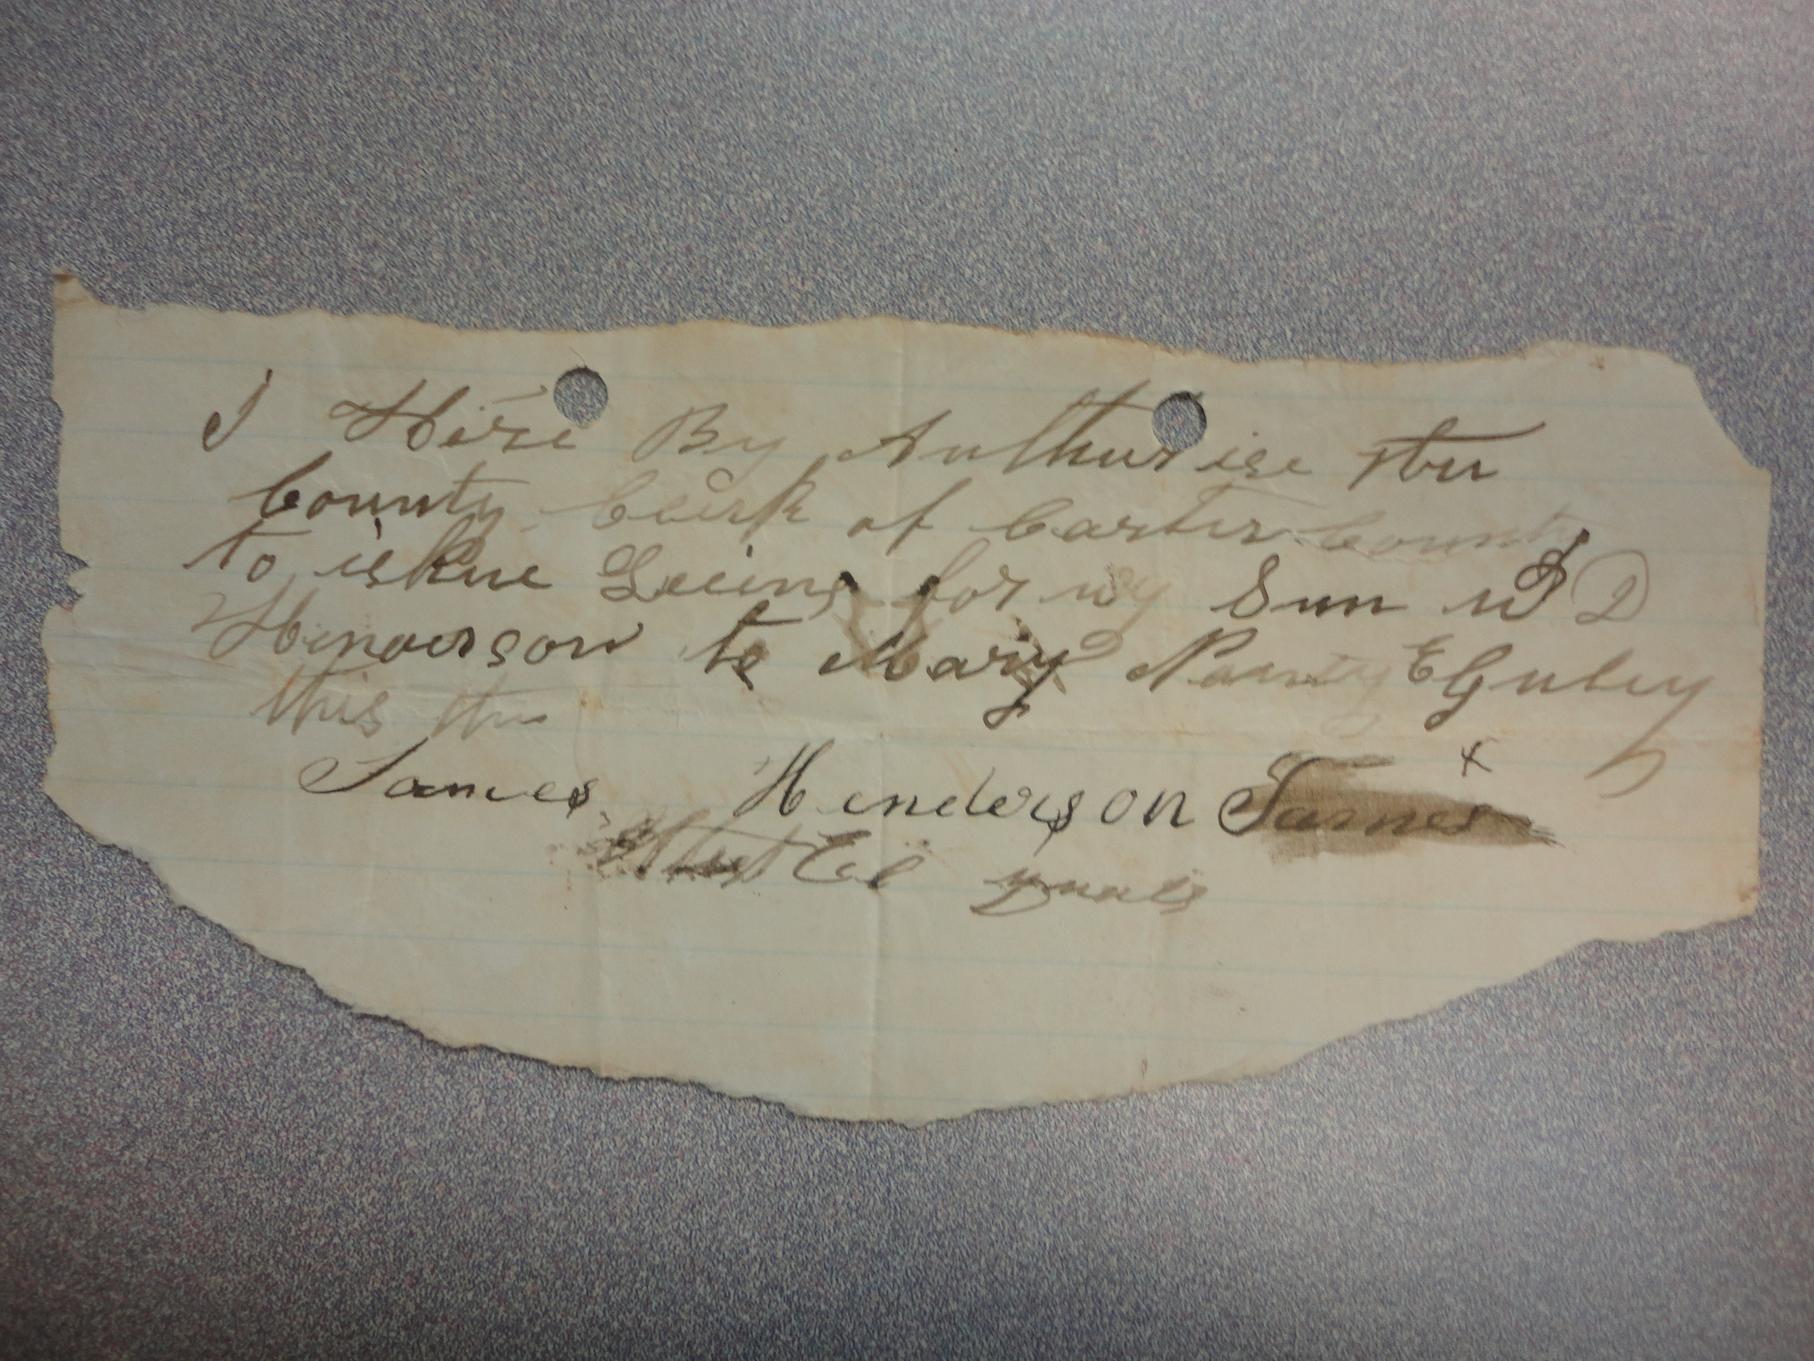 I Here By Authorise the
County Clerk of Carter County
to iskue Leicins for my Sun W D
Henderson to Mary Nancy E Guley
this the
James Henderson James x
Attest Ed